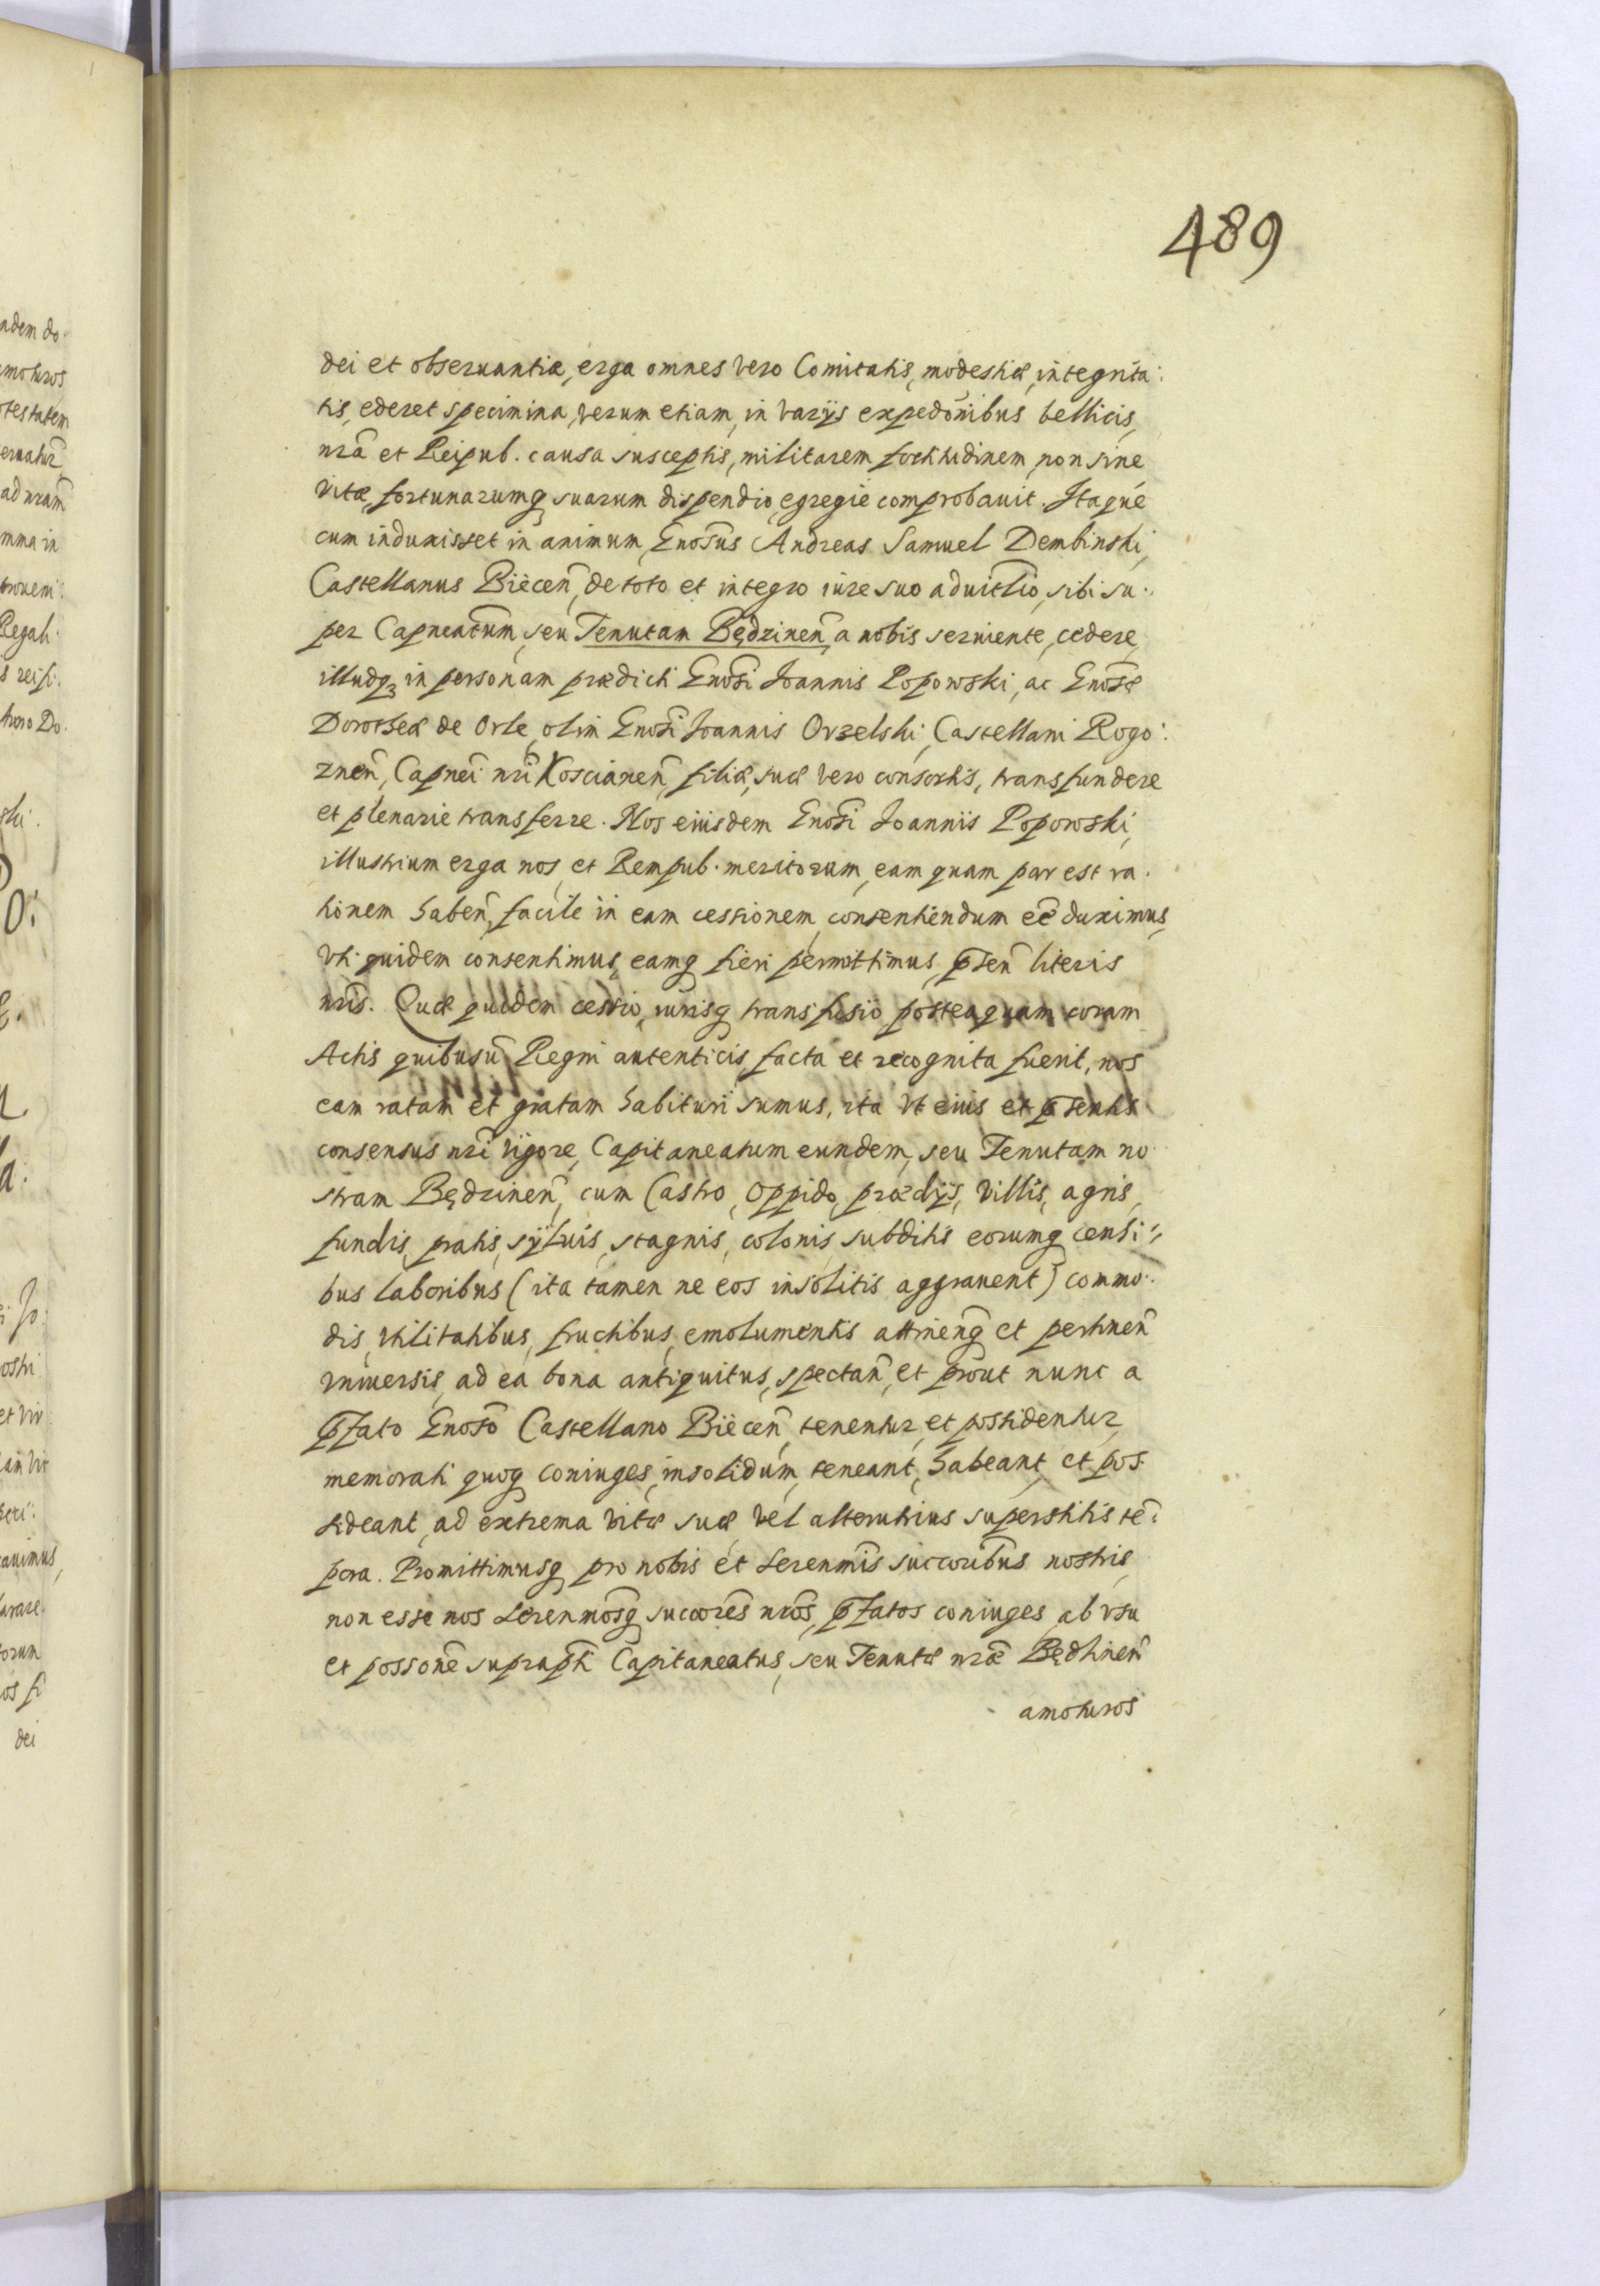 489
dei et obseruantiæ, erga omnes vero Comitatis, modestiæ, integrita:
tis, ederet specimina, verum etiam, in varijs expedõnibus bellicis,
nrã et Reipub. causa susceptis, militarem fortitudinem, non sine
vitæ, fortunarumq; suarum dispendio, egregiè comprobauit. Itaque
cum induxisset in animum, Gnosus Andreas Samuel Dembinski,
Castellanus Biècen̄, de toto et integro iure suo aduitlio, sibi su:
per Capneatum̄, seu Tenutam Będzinen̄, a nobis seruiente, cedere,
illudq; in personam prædicti Gnosi Joannis Popowski, ac Gnosæ
Dorotheæ de Orle, olim Gnosi Joannis Orzelski, Castellani Rogo:
znen̄, Capnei nri Koscianen̄, filiæ, suæ vero consortis, transfundere
et plenarie transferre. Nos eiusdem Gnosi Joannis Popowski,
illustrium erga nos, et Rempub. meritorum, eam quam par est ra.
tionem haben̄, facile in eam cessionem, consentiendum eē duximus,
vti quidem consentimus, eamq; fieri permittimus, p̄sen̄ literis
nris̄. Quæ quidem cessio, iurisq; transfusio, posteaquam coram
Actis quibusū Regni autenticis, facta et recognita fuerit, nos
eam ratam et gratam habituri sumus, ita vt eius et p̄sentis
consensus nri vigore, Capitaneatum eundem, seu Tenutam no
stram Będzinen̄, cum Castro, Oppido, prædijs, villis, agris,
fundis, pratis, syluis, stagnis, colonis, subditis eorumq; censi:
bus laboribus (ita tamen ne eos insolitis aggrauent) commo:
dis, vtilitatibus, fructibus, emolumentis attinenq̄; et pertinen̄
vniuersis, ad ea bona antiquitus, spectan̄, et prout nunc a
p̄fato Gnoso Castellano Biècen̄, tenentur, et possidentur,
memorati quoq; coniuges, insolidum, teneant, habeant, et pos
sideant, ad extrema vitæ suæ vel alterutrius superstitis tē:
pora. Promittimusq; pro nobis et Serenmis̄ succoribus̄ nostris,
non esse nos Serenmosq̄; succores̄ nros̄, p̄fatos coniuges, ab vsu
et possone supraptī Capitaneatus, seu Tenutæ nrǣ Będzinen̄
amoturos